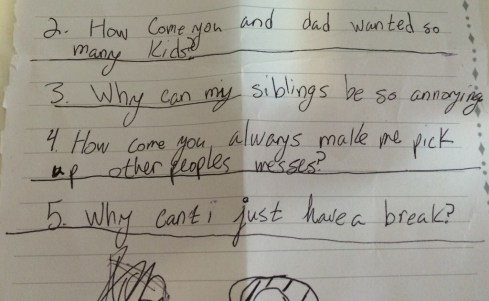 2. How come you and dad wanted so
many kids?
3. Why can my siblings be so annoying
4. How come you always make me pick
up other peoples messes?
5. Why cant i just have a break?